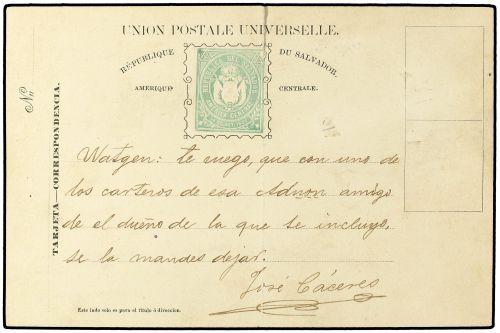 UNION POSTALE UNIVERSELLE.
RÉPUBLIQUE DU SALVADOR.
AMERIQUE CENTRALE.
TARJETA—CORRESPONDENCIA.
Watgen: te ruego, que con uno de
los carteros de esa amigo
de el dueño de la que te incluyo,
se la mandes dejar.
José Cáceres
Este lado solo es para el título ó direccion.